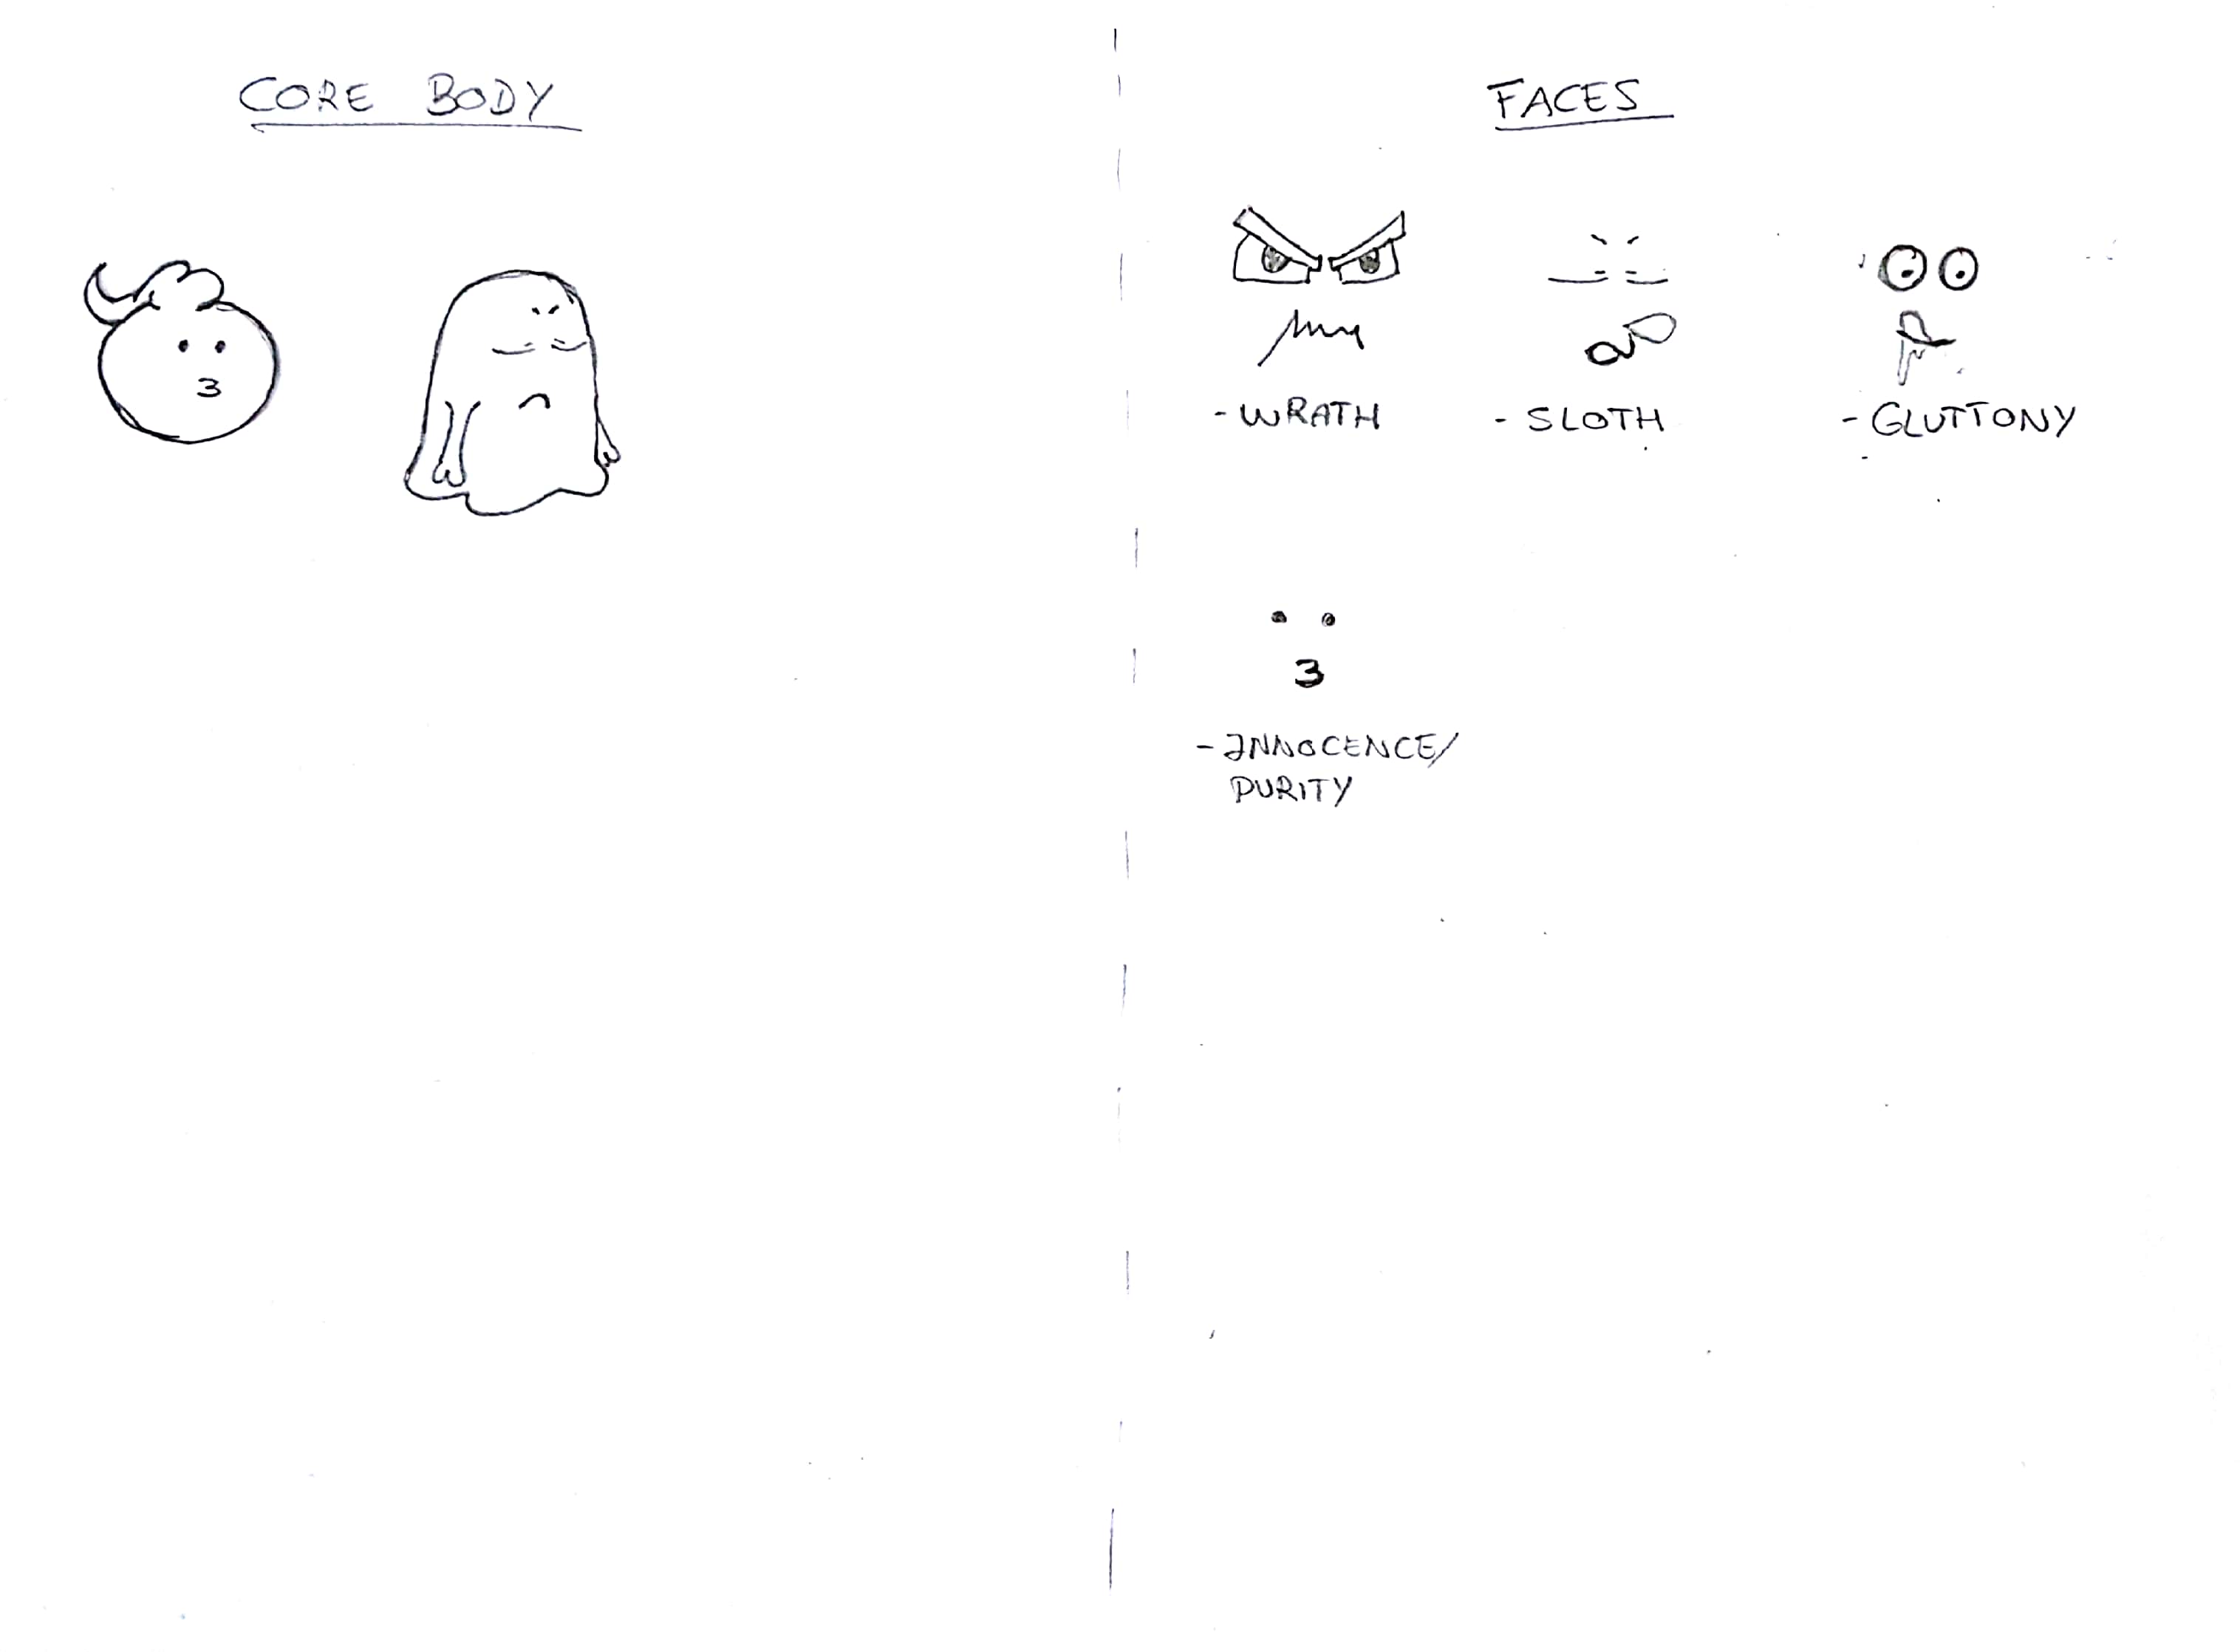 CORE BODY
FACES
- WRATH
- SLOTH
- GLUTTONY
3
3
- INNOCENCE/
PURITY